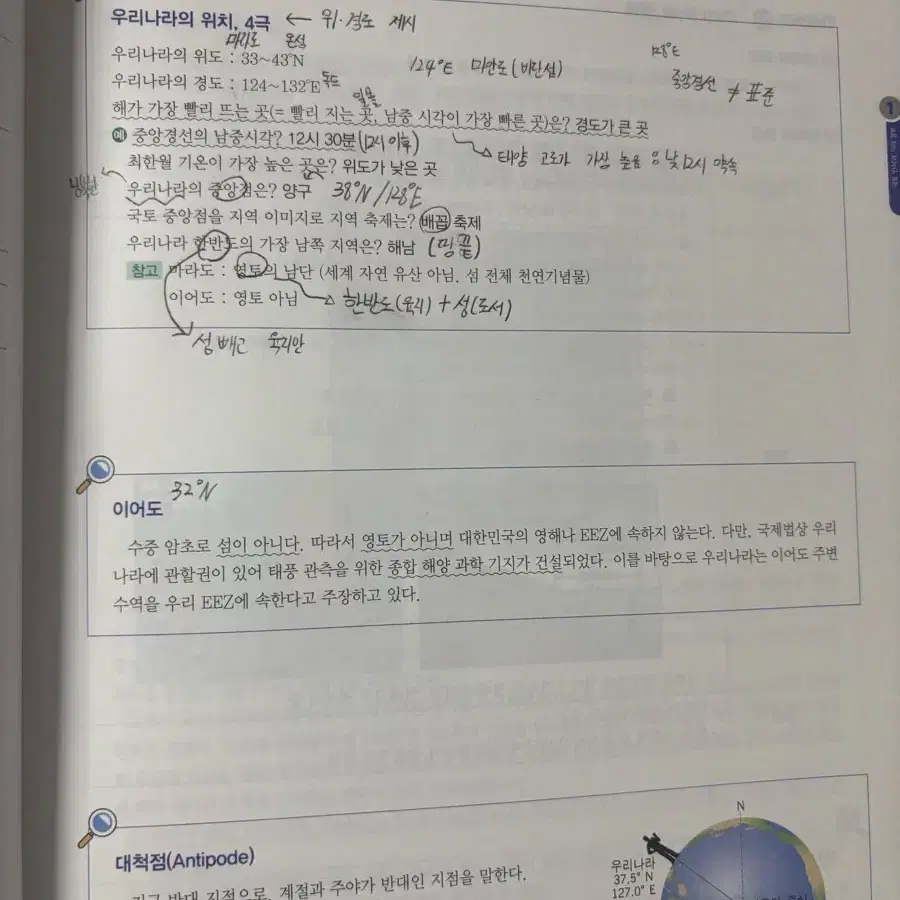 우리나라의 위치, 4극 ← 위·경도 제시
마라도 온성
우리나라의 위도 : 33~43°N
124°E 마안도(비단섬)
128°E
우리나라의 경도 : 124~132°E 독도
중앙경선 ≠ 표준
일몰
해가 가장 빨리 뜨는 곳(= 빨리 지는 곳, 남중 시각이 가장 빠른 곳)은? 경도가 큰 곳
예 중앙경선의 남중시각? 12시 30분 (12시 이후)
태양 고도가 가장 높음 낮 12시 약속
최한월 기온이 가장 높은 곳은? 위도가 낮은 곳
우리나라의 중앙점은? 양구 38°N / 128°E
국토 중앙점을 지역 이미지로 지역 축제는? 배꼽 축제
우리나라 한반도의 가장 남쪽 지역은? 해남 (땅끝)
참고 마라도 : 영토의 남단 (세계 자연 유산 아님. 섬 전체 천연기념물)
이어도 : 영토 아님 한반도(육지) + 섬(도서)
섬 빼고 육지만
이어도 32°N
수중 암초로 섬이 아니다. 따라서 영토가 아니며 대한민국의 영해나 EEZ에 속하지 않는다. 다만, 국제법상 우리
나라에 관할권이 있어 태풍 관측을 위한 종합 해양 과학 기지가 건설되었다. 이를 바탕으로 우리나라는 이어도 주변
수역을 우리 EEZ에 속한다고 주장하고 있다.
대척점(Antipode)
지구 반대 지점으로, 계절과 주야가 반대인 지점을 말한다.
N
우리나라
37.5° N
127.0° E
1